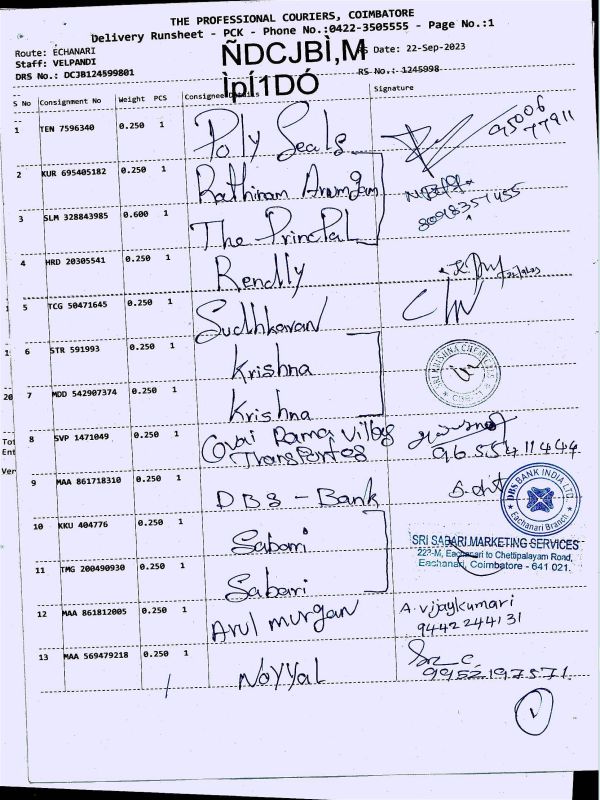 THE PROFESSIONAL COURIERS, COIMBATORE
Delivery Runsheet - PCK - Phone No.:0422-3505555 - Page No.:1
Route: ECHANARI
ÑDCJBÌ,M
Date: 22-Sep-2023
Staff: VELPANDI
DRS No.: DCJB124599801
ÌpÍ1DÓ
RS No.: 1245998
S No Consignment No Weight PCS Consignee Details Signature
1 TEN 7596340 0.250 1 Poly Seals 95006 77911
2 KUR 695405182 0.250 1 Rathinam Arumgam 8098351455
3 SLM 328843985 0.600 1 The Princpal
4 HRD 20305541 0.250 1 Rendlly
5 TCG 50471645 0.250 1 Sudhkaran
6 STR 591993 0.250 1 Krishna
SRI KRISHNA
7 MDD 542907374 0.250 1 Krishna
8 SVP 1471049 0.250 1 Covai Ramaj Villas
Transportes 9655411444
9 MAA 861718310 0.250 1 DBS - Bank
DBS BANK INDIA LTD
Eachanari Branch
10 KKU 404776 0.250 1 Sabari
SRI SABARI MARKETING SERVICES
223-M, Eachanari to Chettipalayam Road,
Eachanari, Coimbatore - 641 021.
11 TMG 200490930 0.250 1 Sabari
12 MAA 861812005 0.250 1 Arul murgan A. vijaykumari
9442244131
13 MAA 569479218 0.250 1 Noyyal
9952197571
1